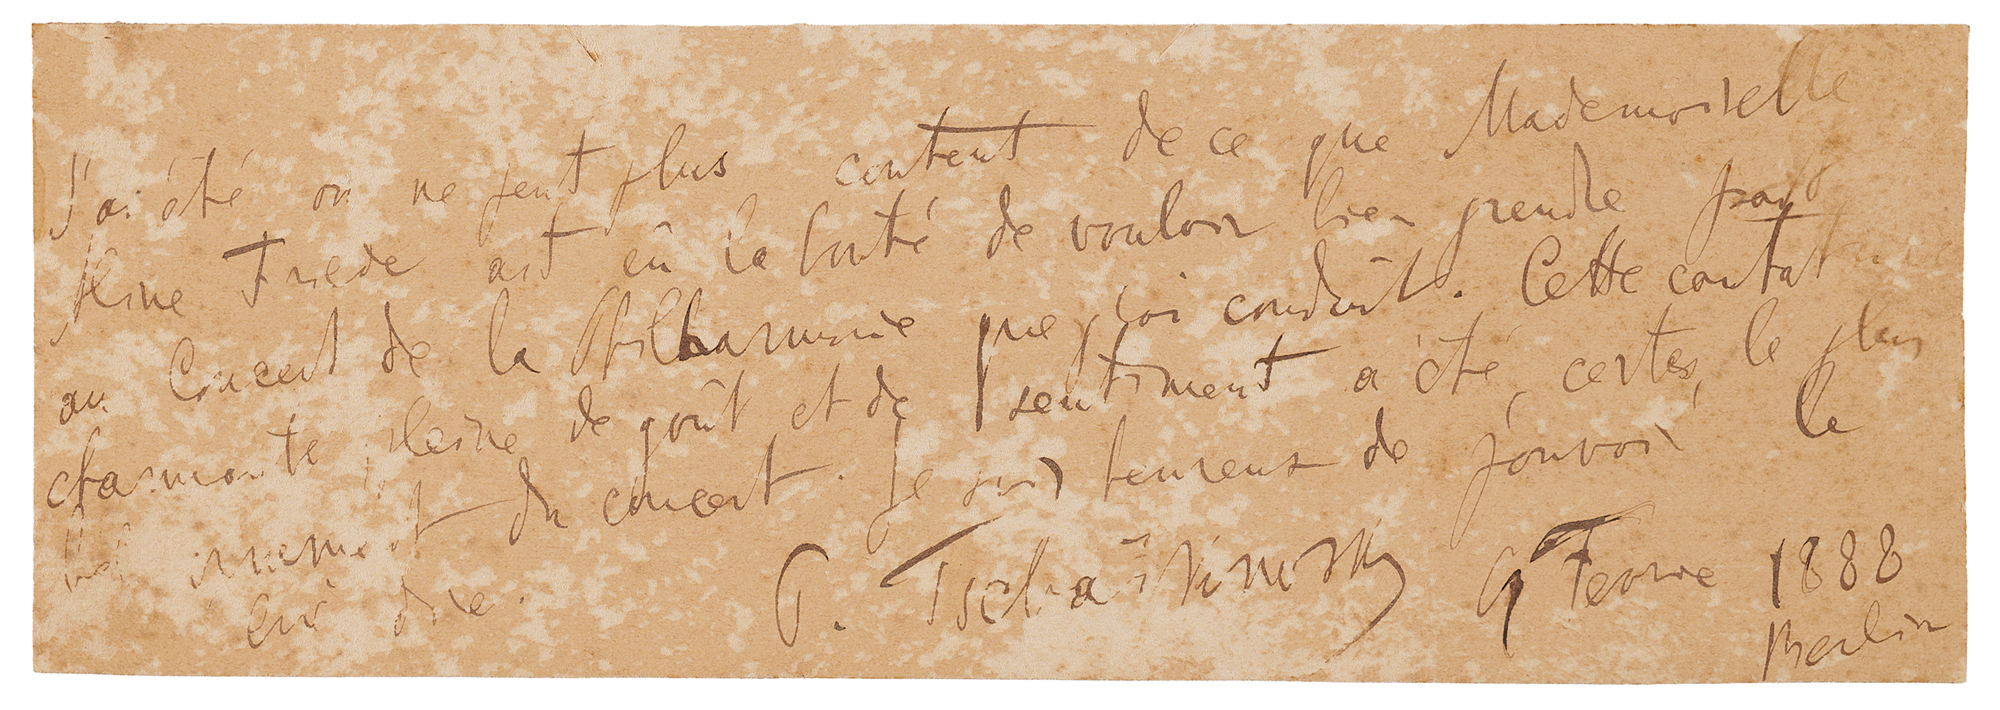 J'ai été on ne peut plus content de ce que Mademoiselle
Aline Friede ait eû la bonté de vouloir bien prendre part
au Concert de la Philharmonie que j'ai conduit. Cette cantatrice
charmante, pleine de goût et de sentiment a été, certes, le plus
bel ornement du concert. Je suis heureux de pouvoir le
lui dire.
P. Tschaïkovsky 9 Fevrie 1888
Berlin